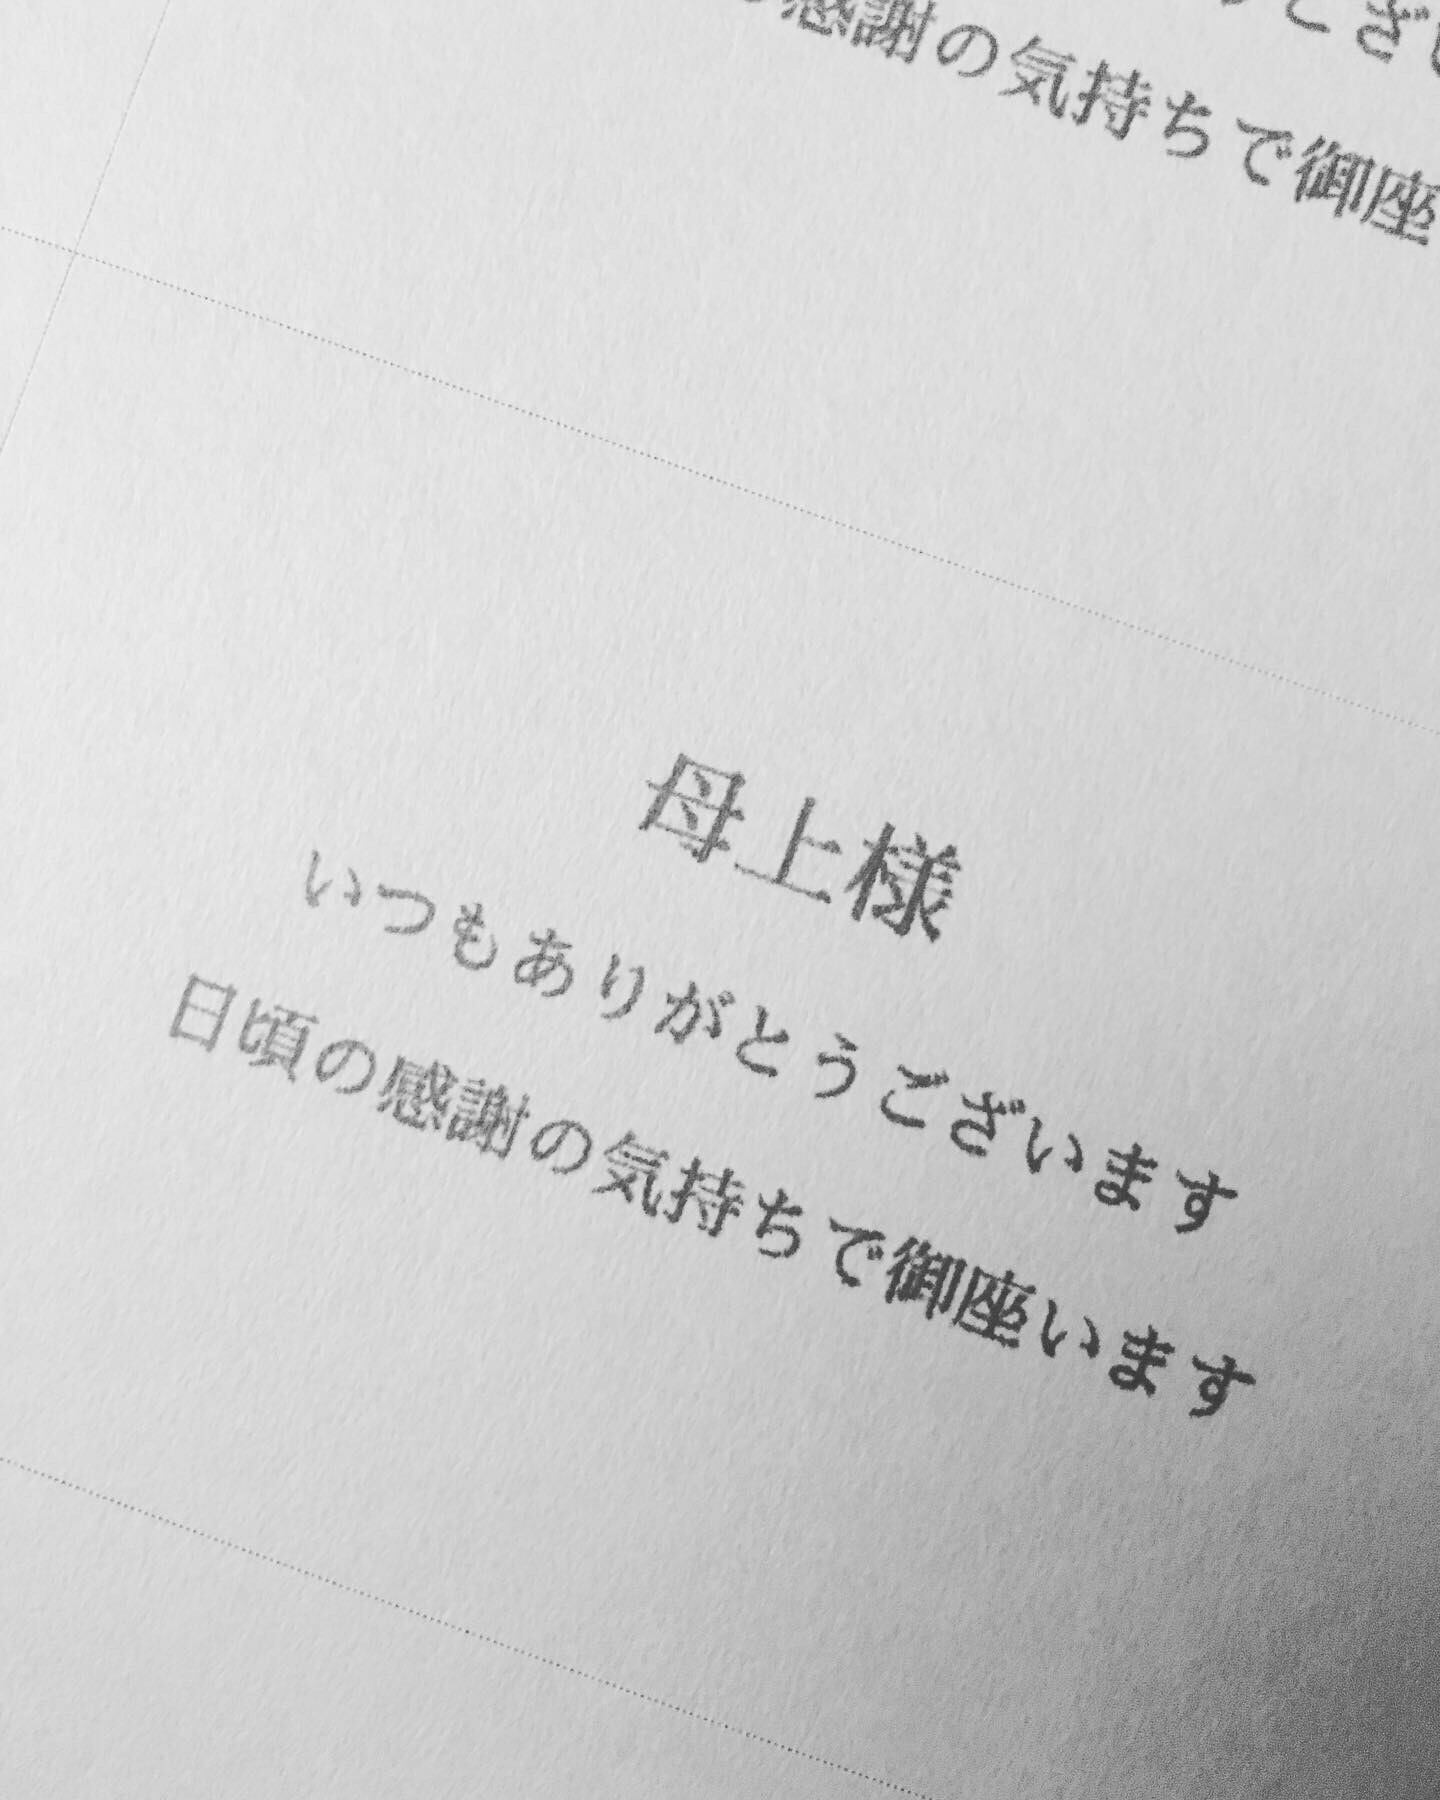 ござい
感謝の気持ちで御座
母上様
いつもありがとうございます
日頃の感謝の気持ちで御座います